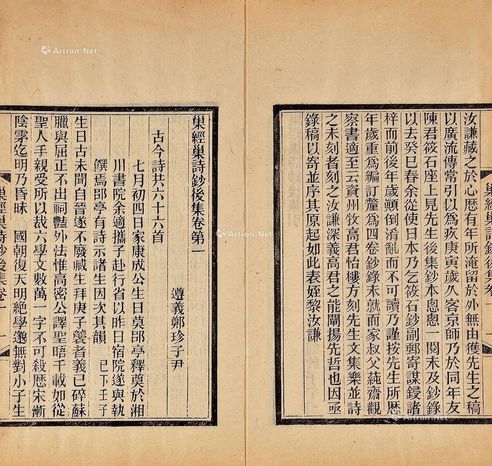 汝謙藏之於心歷有年所淹留於外無由獲先生之稿
以廣流傳常引以爲疚庚寅歲久客京師乃於同年友
陳君筱石座上見先生後集鈔本悤悤一閱未及鈔錄
以去癸巳春余從使日本乃乞筱石鈔副郵寄謀鋟諸
梓而前後年歲顛倒淆亂而不可讀乃謹按先生所歷
年歲重爲編訂釐爲四卷鈔錄未就而家叔父蒓齋觀
察書適至云資州牧高君怡樓方刻先生文集樂並詩
之未刻者刻之汝謙深義高君之能闡揚先哲也因亟
錄稿以寄並序其原起如此表姪黎汝謙
巢經巢詩鈔後集卷第一
遵義鄭珍子尹
古今詩共六十六首
七月初四日家康成公生日莫郘亭釋奠於湘
川書院余適攜子赴行省以昨日宿院遂與執
饌焉郘亭有詩示諸生因次其韻 已下壬子
生日古未聞自晉遂不廢藏生拜庚子龔者義已碎蘇
臘與屈正不出祠醼外法惟高密公譯聖晤千載如從
聖人手親受所以裁六學文數萬一字不可殺歷宋漸
陰霿迄明乃昏昧 國朝復天明絕學邈無對小子生
巢經巢詩鈔後集卷一
Artron.Net
Artron.Net